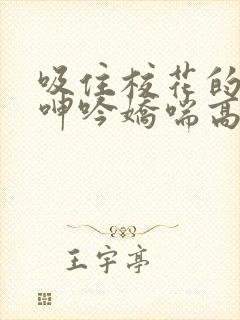 吸住校花的
呻吟娇喘高
王宇亭